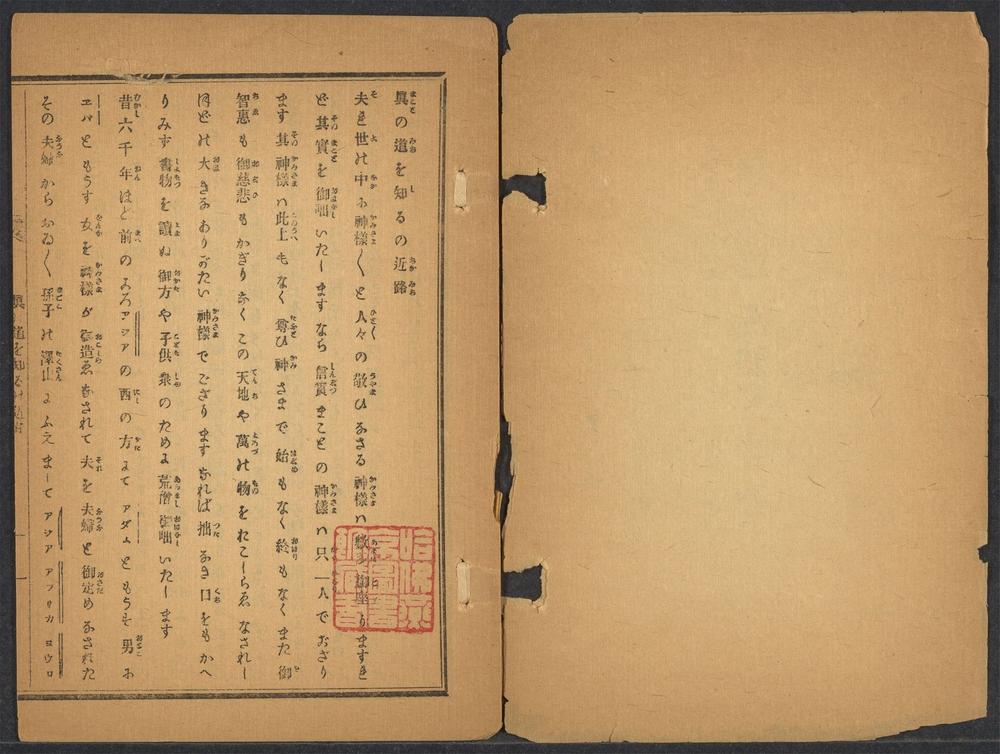 眞の道を知るの近路
夫れ世の中に神樣〳〵と人々の敬ひなさる神樣ハ數多御座りますれ
ど其實を御咄いたしますなら信實まことの神樣ハ只一人でおざり
ます其神樣ハ此上もなく尊ひ神さまで始もなく終もなくまた御
智惠も御慈悲もかぎりなく この天地や萬の物をおこしらゑなされし
ほどの大きなありがたい神樣でござります なれば拙なき口をもかへ
りみず書物を讀ぬ御方や子供衆のために荒増御咄いたします
昔六千年ほど前のころアジアの西の方にて アダムともうす男に
エバともうす女を神樣が御造ゑなされて夫を夫婦と御定めなされた
その夫婦からおゐ〳〵孫子の澤山にふえまして アジア アフリカ ヨウロ
眞の道を知るの近路
一